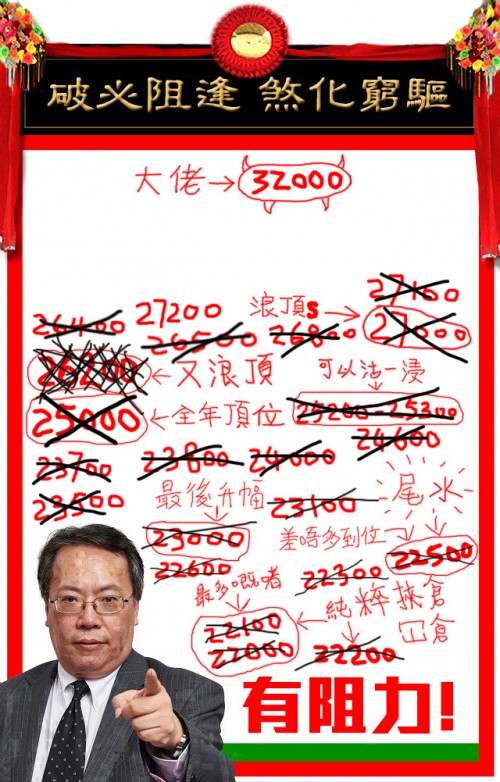 驅窮化煞 逢阻必破
大佬→32000
27100
27200 浪頂s→ 27000
26400 26500 26800
←又浪頂 可以沽一浸
25000 ←全年頂位 25200-25300
24600
23700 23800 24000
23500 最後升幅 23100 尾水
23000 差唔多到位→ 22500
22600 22300
最多嘅啫 純粹挾倉
冚倉
22100
22000 22200
有阻力!